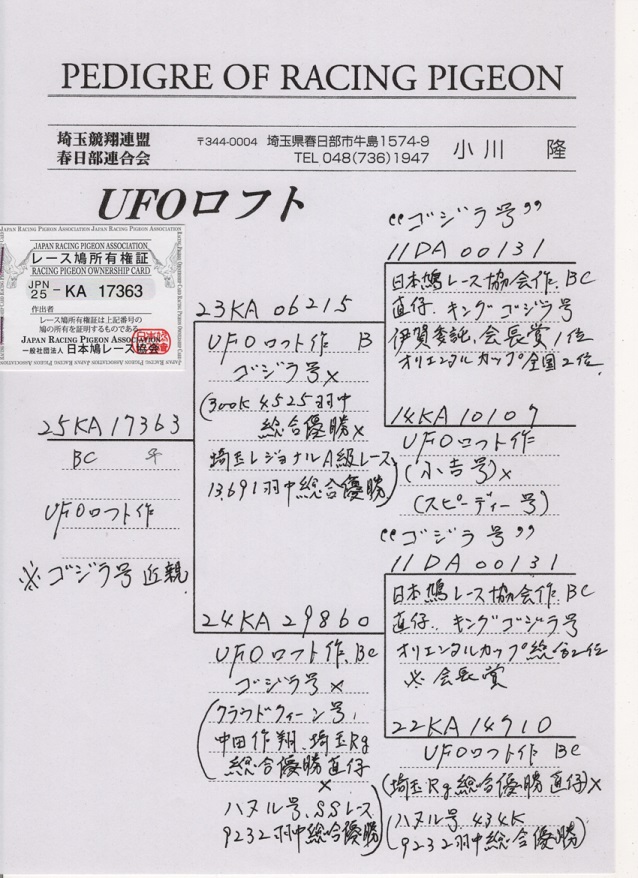 PEDIGRE OF RACING PIGEON
埼玉競翔連盟
春日部連合会
〒344-0004 埼玉県春日部市牛島1574-9
TEL 048(736)1947
小川 隆
UFOロフト
JAPAN RACING PIGEON ASSOCIATION
レース鳩所有権証
RACING PIGEON OWNERSHIP CARD
JPN
25 - KA 17363
作出者
レース鳩所有権証は上記番号の
鳩の所有を証明するものである
JAPAN RACING PIGEON ASSOCIATION
一般社団法人 日本鳩レース協会
25KA17363
BC ♀
UFOロフト作
※ゴジラ号近親
23KA06215
UFOロフト作 B
ゴジラ号×
(300K 4525羽中
総合優勝×
埼玉レジョナルA級レース
13,691羽中総合優勝)
24KA29860
UFOロフト作、BC
ゴジラ号×
(クラウドクィーン号,
中田作翔、埼玉Rg
総合優勝直仔
×
ハヌル号、SSレース
9232羽中総合優勝)
“ゴジラ号”
11DA00131
日本鳩レース協会作、BC
直仔、キングゴジラ号
伊賀委託、会長賞1位
オリエンタルカップ全国2位
14KA10107
UFOロフト作
(小吉号)×
(スピーディー号)
“ゴジラ号”
11DA00131
日本鳩レース協会作、BC
直仔、キングゴジラ号
オリエンタルカップ総合2位
※会長賞
22KA14910
UFOロフト作 BC
(埼玉Rg総合優勝直仔)×
(ハヌル号 434K
9232羽中総合優勝)